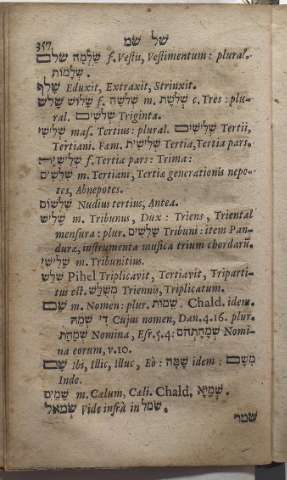 357 שׁל שׁמ
שׂלם שַׂלְמָה f. Vestis, Vestimentum: plural.
שְׂלָמוֹת
שׁלף Eduxit, Extraxit, Strinxit.
שׁלשׁ שָׁלוֹשׁ f. שְׁלֹשָׁה m. שְׁלֹשֶׁת c. Tres: plu-
ral. שְׁלֹשִׁים Triginta.
שְׁלִישִׁי mas. Tertius: plural. שְׁלִישִׁים Tertii,
Tertiani. Fœm. שְׁלִישִׁית Tertia, Tertia pars.
f. Tertia pars: Trima:
שִׁלֵּשִׁים m. Tertiani, Tertiæ generationis nepo-
tes, Abnepotes.
שִׁלְשׁוֹם Nudius tertius, Antea.
שָׁלִישׁ m. Tribunus, Dux: Triens, Triental
mensura: plur. שָׁלִישִׁים Tribuni: item Pan-
duræ, instrumenta musica trium chordarũ.
m. Tribunitius.
שִׁלֵּשׁ Pihel Triplicavit, Tertiavit, Triparti-
tus est. מְשֻׁלָּשׁ Triennis, Triplicatum.
שֵׁם m. Nomen: plur. שֵׁמוֹת. Chald. idem.
דִּי שְׁמֵהּ Cujus nomen, Dan. 4. 16. plur.
שְׁמָהָת Nomina, Esr. 5. 4: שְׁמָהָתְהֹם Nomi-
na eorum, v. 10.
שָׁם ibi, Illic, Illuc, Eò: שָׁמָּה idem: מִשָּׁם
Inde.
שָׁמַיִם m. Cælum, Cæli. Chald. שְׁמַיָּא.
שׂמאל Vide infrà in שׂמל.
שׁמד